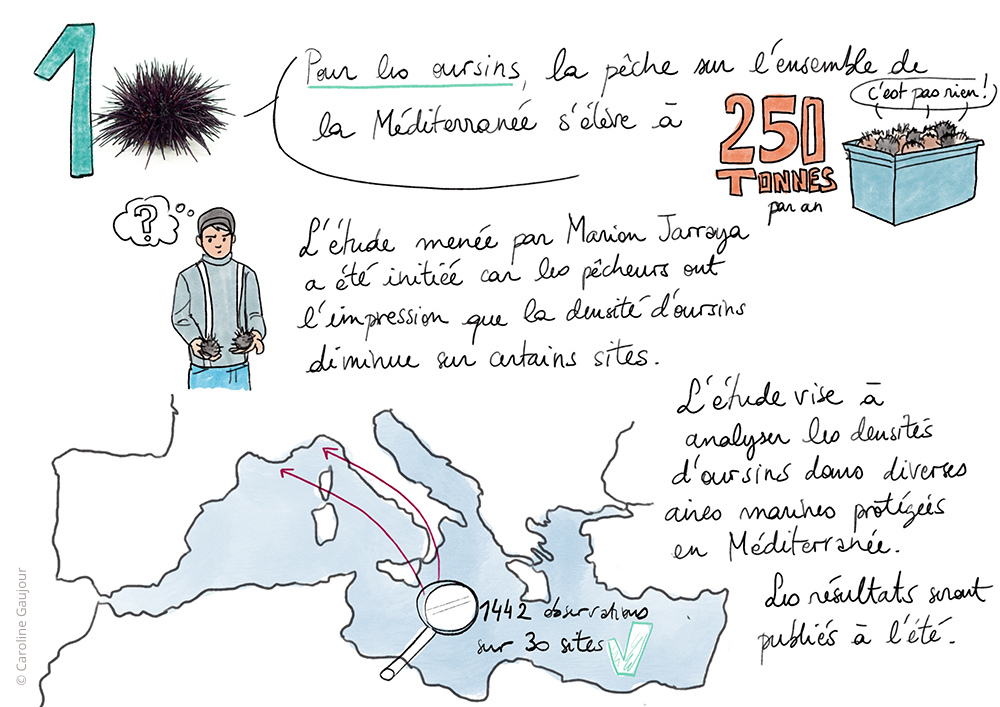 1
Pour les oursins, la pêche sur l'ensemble de
la Méditerranée s'élève à
250
TONNES
par an
c'est pas rien!
?
L'étude menée par Marion Jarraya
a été initiée car les pêcheurs ont
l'impression que la densité d'oursins
diminue sur certains sites.
L'étude vise à
analyser les densités
d'oursins dans diverses
aires marines protégées
en Méditerranée.
Les résultats seront
publiés à l'été.
1442 observations
sur 30 sites
© Caroline Gaujour